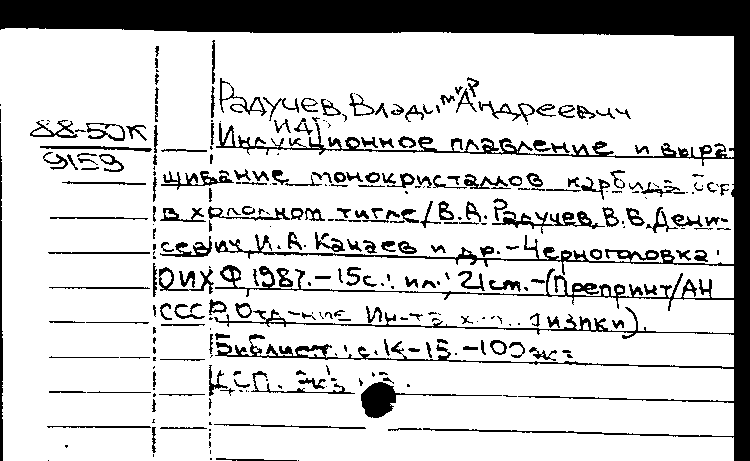 Радучев, Владимир Андреевич
88-50К
9159
Индукционное плавление и выра-
щивание монокристаллов карбида
в холодном тигле / В.А. Радучев, В.В. Дени-
севич, И.А. Канаев и др. - Черноголовка:
ОИХФ, 1987. - 15с.: ил.; 21см. - (Препринт/АН
СССР, Отд-ние Ин-та хим. физики).
Библиогр.: с. 14-15. - 100 экз
ДСП. Экз